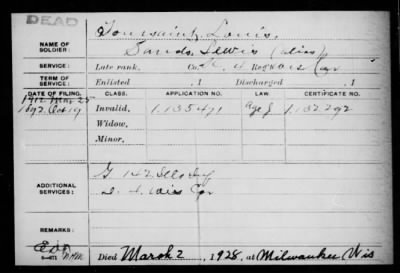 DEAD
NAME OF SOLDIER: Toussaint, Louis,
Sands, Lewis (alias)
SERVICE: Late rank, Co. A Regt. Wis Cav
TERM OF SERVICE: Enlisted , 1 Discharged , 1
DATE OF FILING. CLASS. APPLICATION NO. LAW. CERTIFICATE NO.
1912 Mar 25
1892 Oct 19 Invalid, 1.135.471 1.132.292
Widow,
Minor,
ADDITIONAL SERVICES: G 142 Ills Inf
Wis Cav
REMARKS:
Died March 2, 1928, at Milwaukee Wis